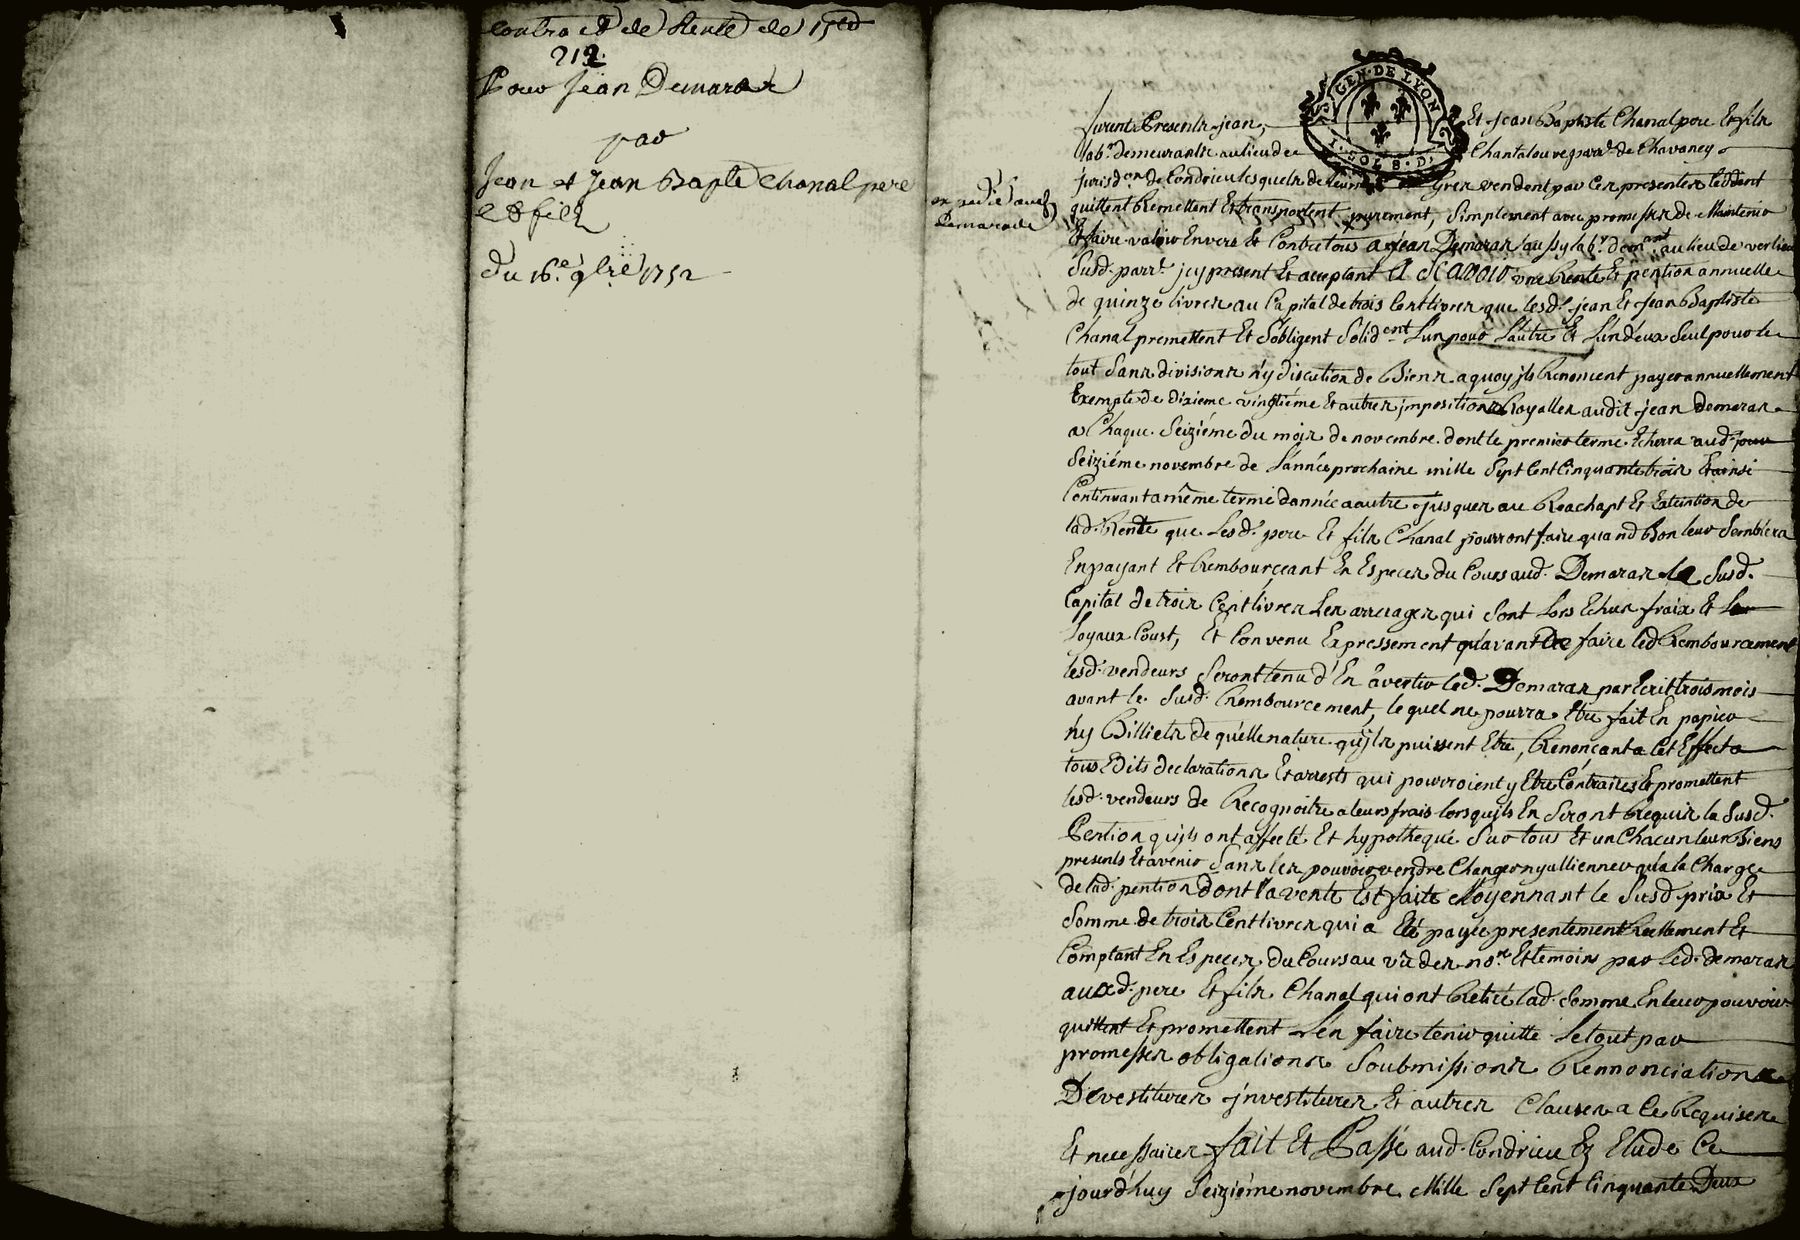 Contract de Rente de 15ᵗᵈ
212.
Pour Jean Demaras
par
Jean et Jean Bapte Chanal pere
et fils
du 16.e 9bre 1752
GEN. DE LYON
1. SOL 8. D.
furent Presents jean, Et Jean Baptiste Chanal pere Et fils
lab.rs demeurants au lieu de Chantalouve parr.e de Chavaney
jurisd.on de Condrieu lesquels de leurs Grez vendent par ces presentes Ceddent
quittent Remettent Et transportent purement, Simplement avec promesses de Maintenir
Et faire valoir Envers Et Contre tous a jean Demaras aussy lab.r dem.ant au lieu de verlieu
Susd. parr.e jcy present Et acceptant A Scavoir une Rente Et pention annuelle
de quinze livres au Capital de trois Cent livres que lesd. jean Et Jean Baptiste
Chanal promettent Et S'obligent Solid.ent L'un pour L'autre Et L'un d'eux Seul pour le
tout Sans divisions n'y discution de Biens a quoy jls Renoncent payer annuellement
Exempte de dixieme vingtiéme Et autres jmpositions Royalles audit jean demaras
a Chaque Seiziéme du mois de novembre. dont le premier terme Echerra aud. jour
Seiziéme novembre de L'année prochaine mille Sept Cent Cinquante trois Et ainsi
Continuant a même terme d'année a autre jusques au Reachapt Et Extention de
lad. Rente que Lesd. pere Et fils Chanal pourront faire quand Bon leur Semblera
En payant Et Rembourceant En Especes du Cours aud. Demaras le Susd.
Capital de trois Cent livres Les arrerages qui Sont Lors Echus fraix Et
Loyaux Coust, Et Convenu Expressement qu'avant de faire led. Rembourcement
lesd. vendeurs Seront tenu d'En avertir led. Demaras par Ecrit trois mois
avant le Susd. Rembourcement, le quel ne pourra Etre fait En papier
n'y Billiets de quelle nature qu'jls puissent Etre, Renonçant a Cet Effect a
tous Edits declarations Et arrests qui pourroient y Etre Contraires Et promettent
lesd. vendeurs de Recognoitre a leurs frais lorsqu'jls En Seront Requis la Susd.
Pention qu'jls ont affecté Et hypothequé Sur tous Et un Chacun leurs Biens
presents Et avenir Sans les pouvoir vendre Changer ny allienner qu'a la Charge
de lad. pention dont la vente Est faite Moyennant le Susd. prix Et
Somme de trois Cent livres qui a Eté payée presentement Réellement Et
Comptant En Especes du Cours au vû des no.re Et temoins par led. demaras
auxd. pere Et fils Chanal qui ont Retiré lad. Somme En leur pouvoir
quittent Et promettent L'en faire tenir quitte le tout par
promesses obligations Soubmissions Rennonciations
Devestitures jnvestitures Et autres Clauses a Ce Requises
Et necessaires fait Et Passé aud. Condrieu Ez Etude Ce
jourd'huy Seiziéme novembre Mille Sept Cent Cinquante Deux